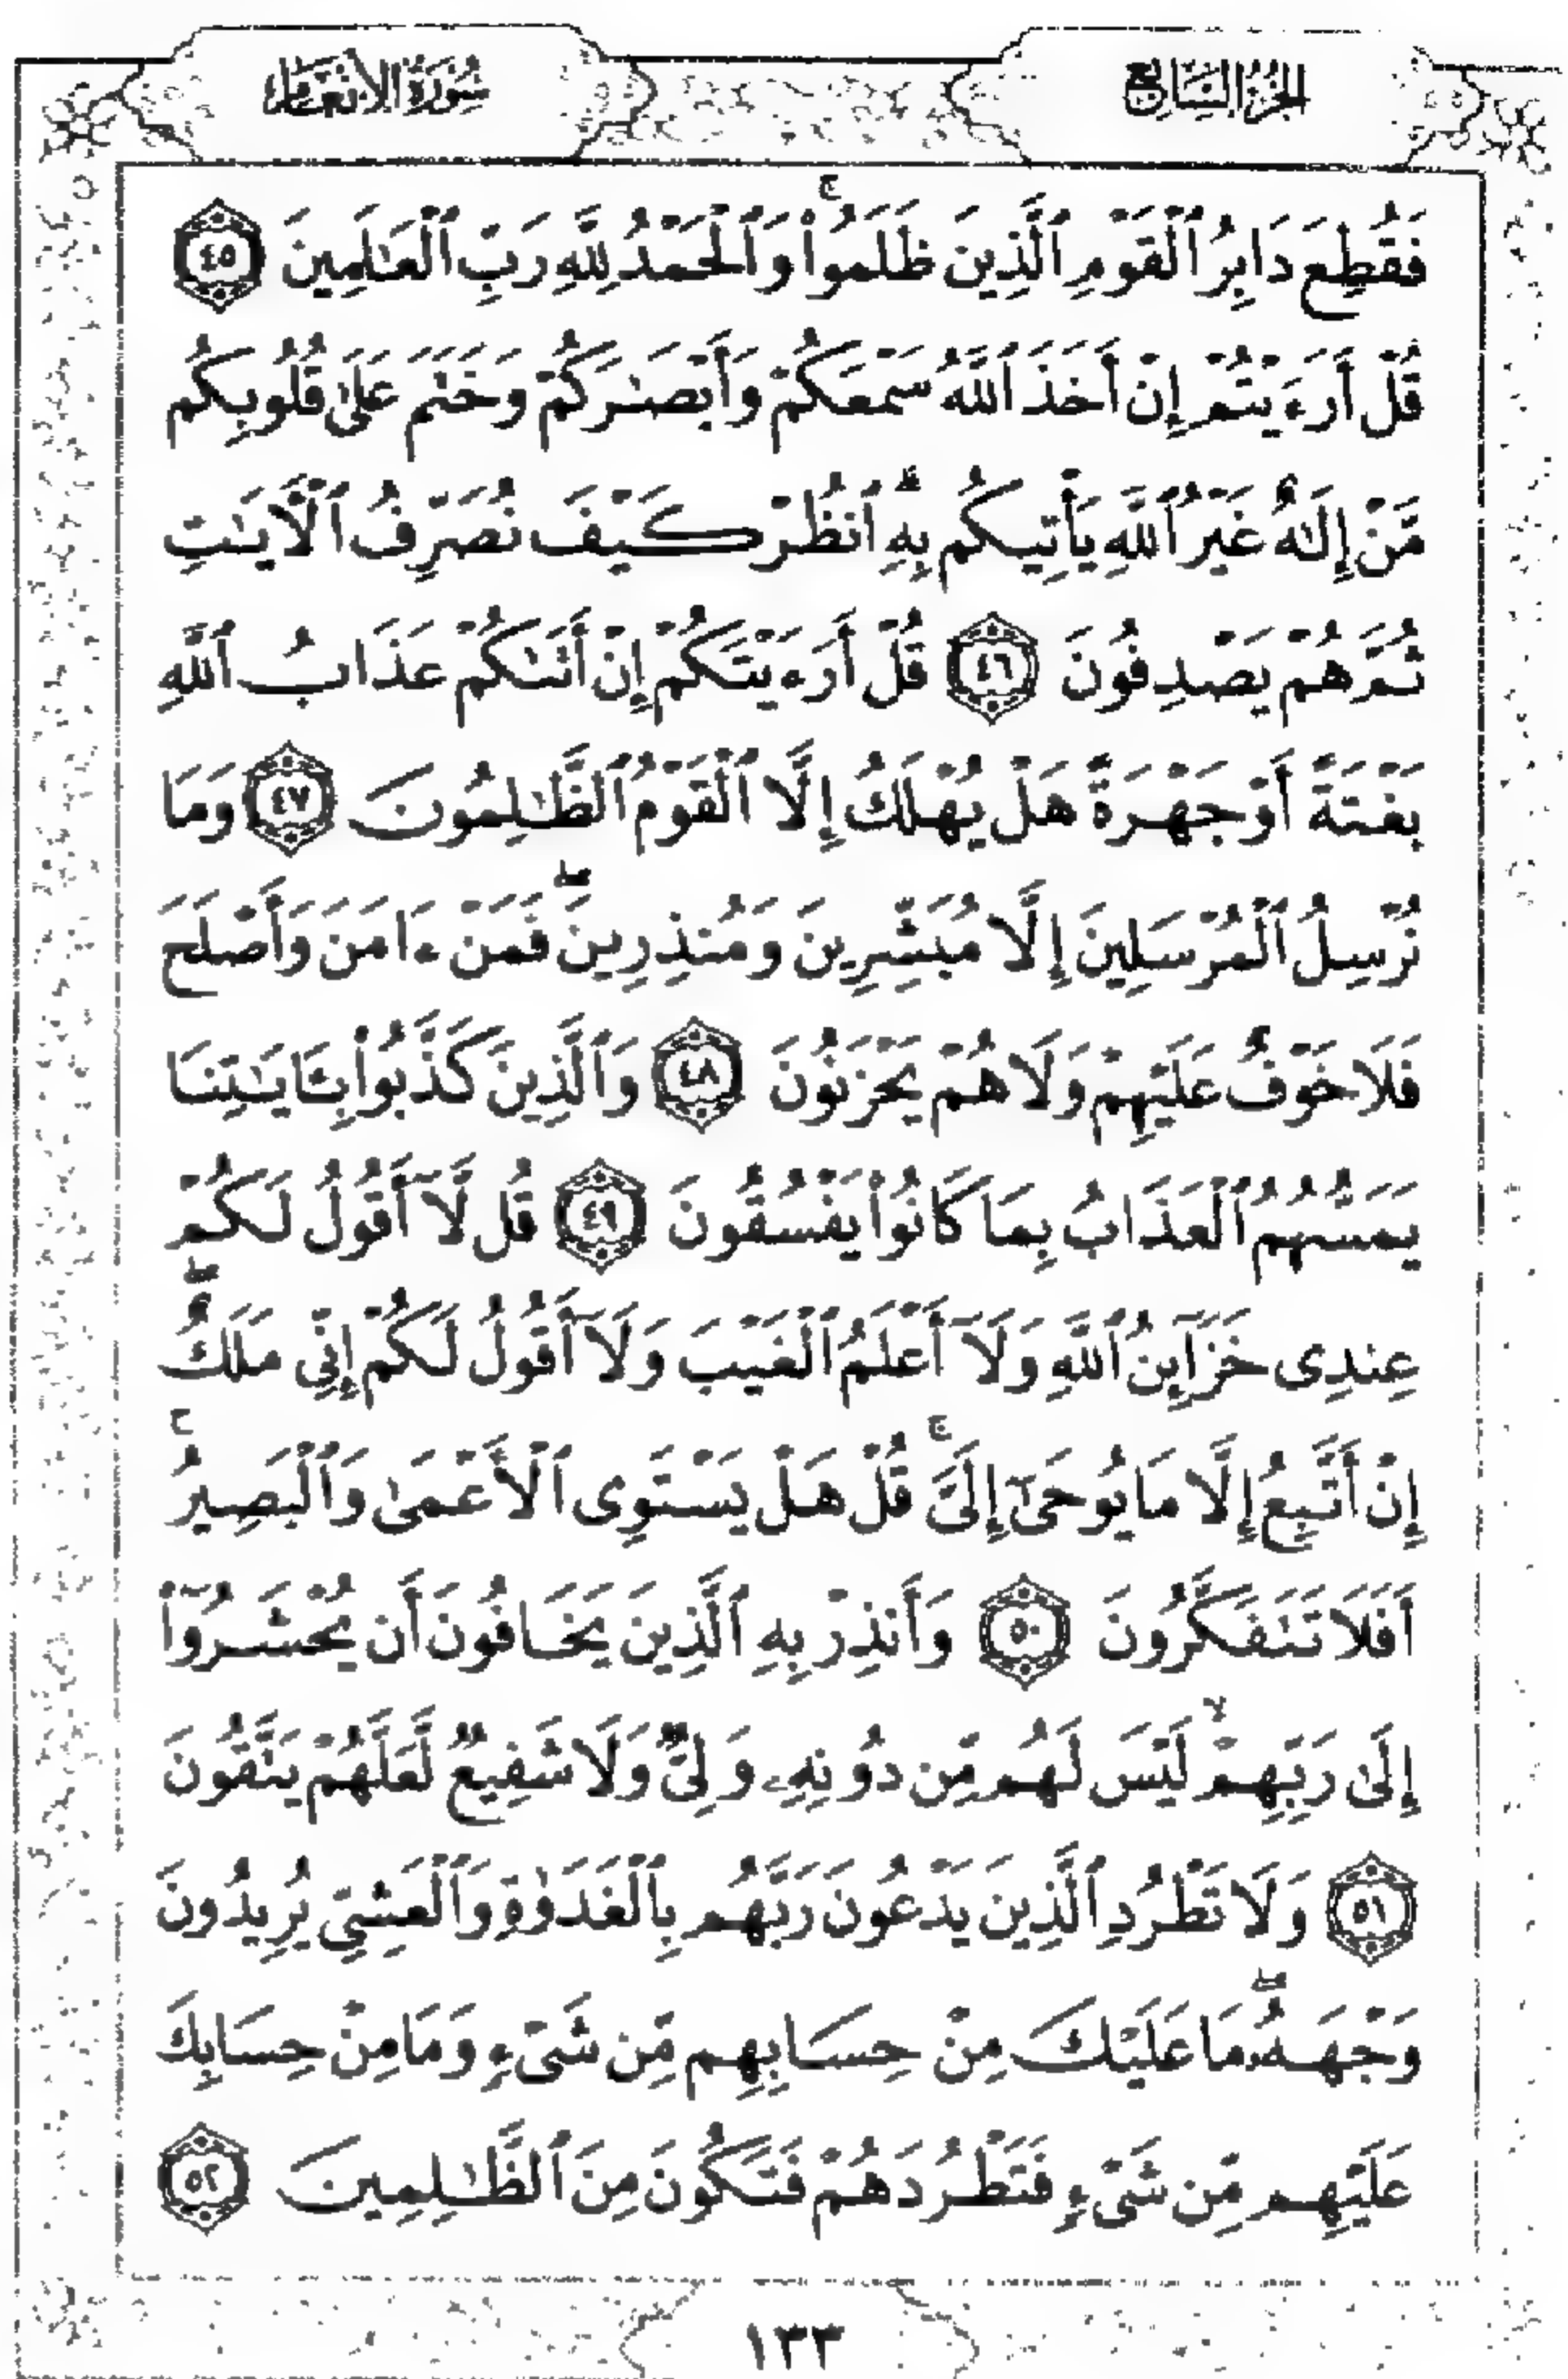 الجزء السابع
سورة الأنعام
فَقُطِعَ دَابِرُ ٱلْقَوْمِ ٱلَّذِينَ ظَلَمُوا۟ۚ وَٱلْحَمْدُ لِلَّهِ رَبِّ ٱلْعَٰلَمِينَ ٤٥
قُلْ أَرَءَيْتُمْ إِنْ أَخَذَ ٱللَّهُ سَمْعَكُمْ وَأَبْصَٰرَكُمْ وَخَتَمَ عَلَىٰ قُلُوبِكُم
مَّنْ إِلَٰهٌ غَيْرُ ٱللَّهِ يَأْتِيكُم بِهِۗ ٱنظُرْ كَيْفَ نُصَرِّفُ ٱلْءَايَٰتِ
ثُمَّ هُمْ يَصْدِفُونَ ٤٦ قُلْ أَرَءَيْتَكُمْ إِنْ أَتَىٰكُمْ عَذَابُ ٱللَّهِ
بَغْتَةً أَوْ جَهْرَةً هَلْ يُهْلَكُ إِلَّا ٱلْقَوْمُ ٱلظَّٰلِمُونَ ٤٧ وَمَا
نُرْسِلُ ٱلْمُرْسَلِينَ إِلَّا مُبَشِّرِينَ وَمُنذِرِينَۖ فَمَنْ ءَامَنَ وَأَصْلَحَ
فَلَا خَوْفٌ عَلَيْهِمْ وَلَا هُمْ يَحْزَنُونَ ٤٨ وَٱلَّذِينَ كَذَّبُوا۟ بِـَٔايَٰتِنَا
يَمَسُّهُمُ ٱلْعَذَابُ بِمَا كَانُوا۟ يَفْسُقُونَ ٤٩ قُل لَّآ أَقُولُ لَكُمْ
عِندِى خَزَآئِنُ ٱللَّهِ وَلَآ أَعْلَمُ ٱلْغَيْبَ وَلَآ أَقُولُ لَكُمْ إِنِّى مَلَكٌۖ
إِنْ أَتَّبِعُ إِلَّا مَا يُوحَىٰٓ إِلَىَّۚ قُلْ هَلْ يَسْتَوِى ٱلْأَعْمَىٰ وَٱلْبَصِيرُۚ
أَفَلَا تَتَفَكَّرُونَ ٥٠ وَأَنذِرْ بِهِ ٱلَّذِينَ يَخَافُونَ أَن يُحْشَرُوٓا۟
إِلَىٰ رَبِّهِمْۙ لَيْسَ لَهُم مِّن دُونِهِۦ وَلِىٌّ وَلَا شَفِيعٌ لَّعَلَّهُمْ يَتَّقُونَ
٥١ وَلَا تَطْرُدِ ٱلَّذِينَ يَدْعُونَ رَبَّهُم بِٱلْغَدَوٰةِ وَٱلْعَشِىِّ يُرِيدُونَ
وَجْهَهُۥۖ مَا عَلَيْكَ مِنْ حِسَابِهِم مِّن شَىْءٍ وَمَا مِنْ حِسَابِكَ
عَلَيْهِم مِّن شَىْءٍ فَتَطْرُدَهُمْ فَتَكُونَ مِنَ ٱلظَّٰلِمِينَ ٥٢
١٣٣